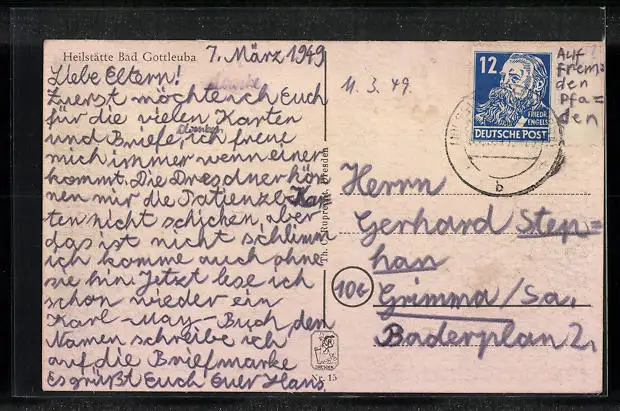 Heilstätte Bad Gottleuba
7. März 1949
Liebe Eltern!
Zuerst möchte ich Euch
danken
für die vielen Karten
und Briefe, ich freue
mich immer wenn einer
kommt. Die Dresdner kön
nen mir die Patienze Kar
ten nicht schicken, aber
das ist nicht schlimm
ich komme auch ohne
sie hin. Jetzt lese ich
schon wieder ein
Karl-May-Buch, den
Namen schreibe ich
auf die Briefmarke
Es grüßt Euch Euer Hans.
11. 3. 49.
12
FRIEDR.
ENGELS
DEUTSCHE POST
Auf
frem=
den
Pfa=
den
b
Herrn
Gerhard Step=
han
10b
Grimma/Sa.
Baderplan 2,
Dresden
DRESDEN
Nr. 15